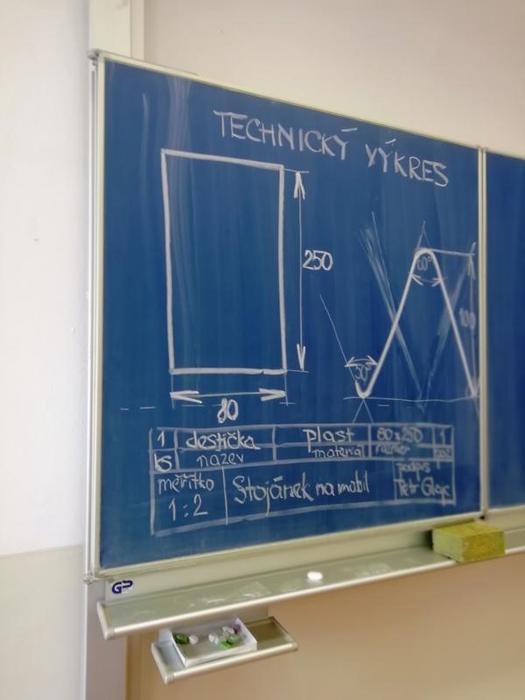 TECHNICKÝ VÝKRES
250
80
50°
60°
100
1 destička plast 80 x 250 1
ks název materiál rozměr
měřítko Stojánek na mobil podpis
1:2 Petr